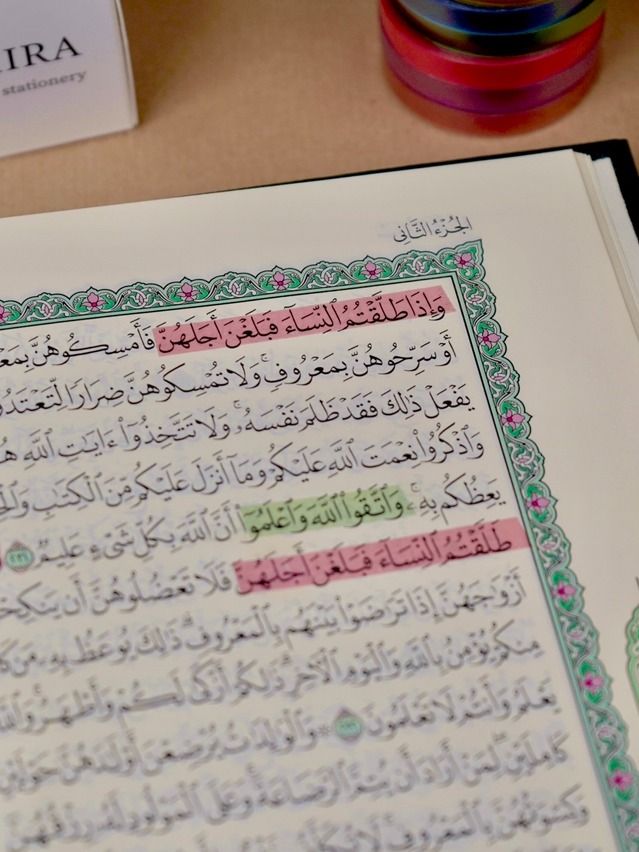 IRA
stationery
الجُزْءُ الثَّانِي
وَإِذَا طَلَّقْتُمُ ٱلنِّسَآءَ فَبَلَغْنَ أَجَلَهُنَّ فَأَمْسِكُوهُنَّ
أَوْ سَرِّحُوهُنَّ بِمَعْرُوفٍ ۚ وَلَا تُمْسِكُوهُنَّ ضِرَارًا لِّتَعْتَدُوا
يَفْعَلْ ذَٰلِكَ فَقَدْ ظَلَمَ نَفْسَهُۥ ۚ وَلَا تَتَّخِذُوٓا۟ ءَايَٰتِ ٱللَّهِ
وَٱذْكُرُوا۟ نِعْمَتَ ٱللَّهِ عَلَيْكُمْ وَمَآ أَنزَلَ عَلَيْكُم مِّنَ ٱلْكِتَٰبِ
يَعِظُكُم بِهِۦ ۚ وَٱتَّقُوا۟ ٱللَّهَ وَٱعْلَمُوٓا۟ أَنَّ ٱللَّهَ بِكُلِّ شَىْءٍ عَلِيمٌ ٢٣١
طَلَّقْتُمُ ٱلنِّسَآءَ فَبَلَغْنَ أَجَلَهُنَّ فَلَا تَعْضُلُوهُنَّ أَن يَنكِحْ
أَزْوَٰجَهُنَّ إِذَا تَرَٰضَوْا۟ بَيْنَهُم بِٱلْمَعْرُوفِ ۗ ذَٰلِكَ يُوعَظُ بِهِۦ مَن
مِنكُمْ يُؤْمِنُ بِٱللَّهِ وَٱلْيَوْمِ ٱلْـَٔاخِرِ ۗ ذَٰلِكُمْ أَزْكَىٰ لَكُمْ وَأَطْهَرُ ۗ
يَعْلَمُ وَأَنتُمْ لَا تَعْلَمُونَ ٢٣٢ ۞ وَٱلْوَٰلِدَٰتُ يُرْضِعْنَ أَوْلَٰدَهُنَّ
كَامِلَيْنِ ۖ لِمَنْ أَرَادَ أَن يُتِمَّ ٱلرَّضَاعَةَ ۚ وَعَلَى ٱلْمَوْلُودِ لَهُۥ رِزْقُهُنَّ
وَكِسْوَتُهُنَّ بِٱلْمَعْرُوفِ ۚ لَا تُكَلَّفُ